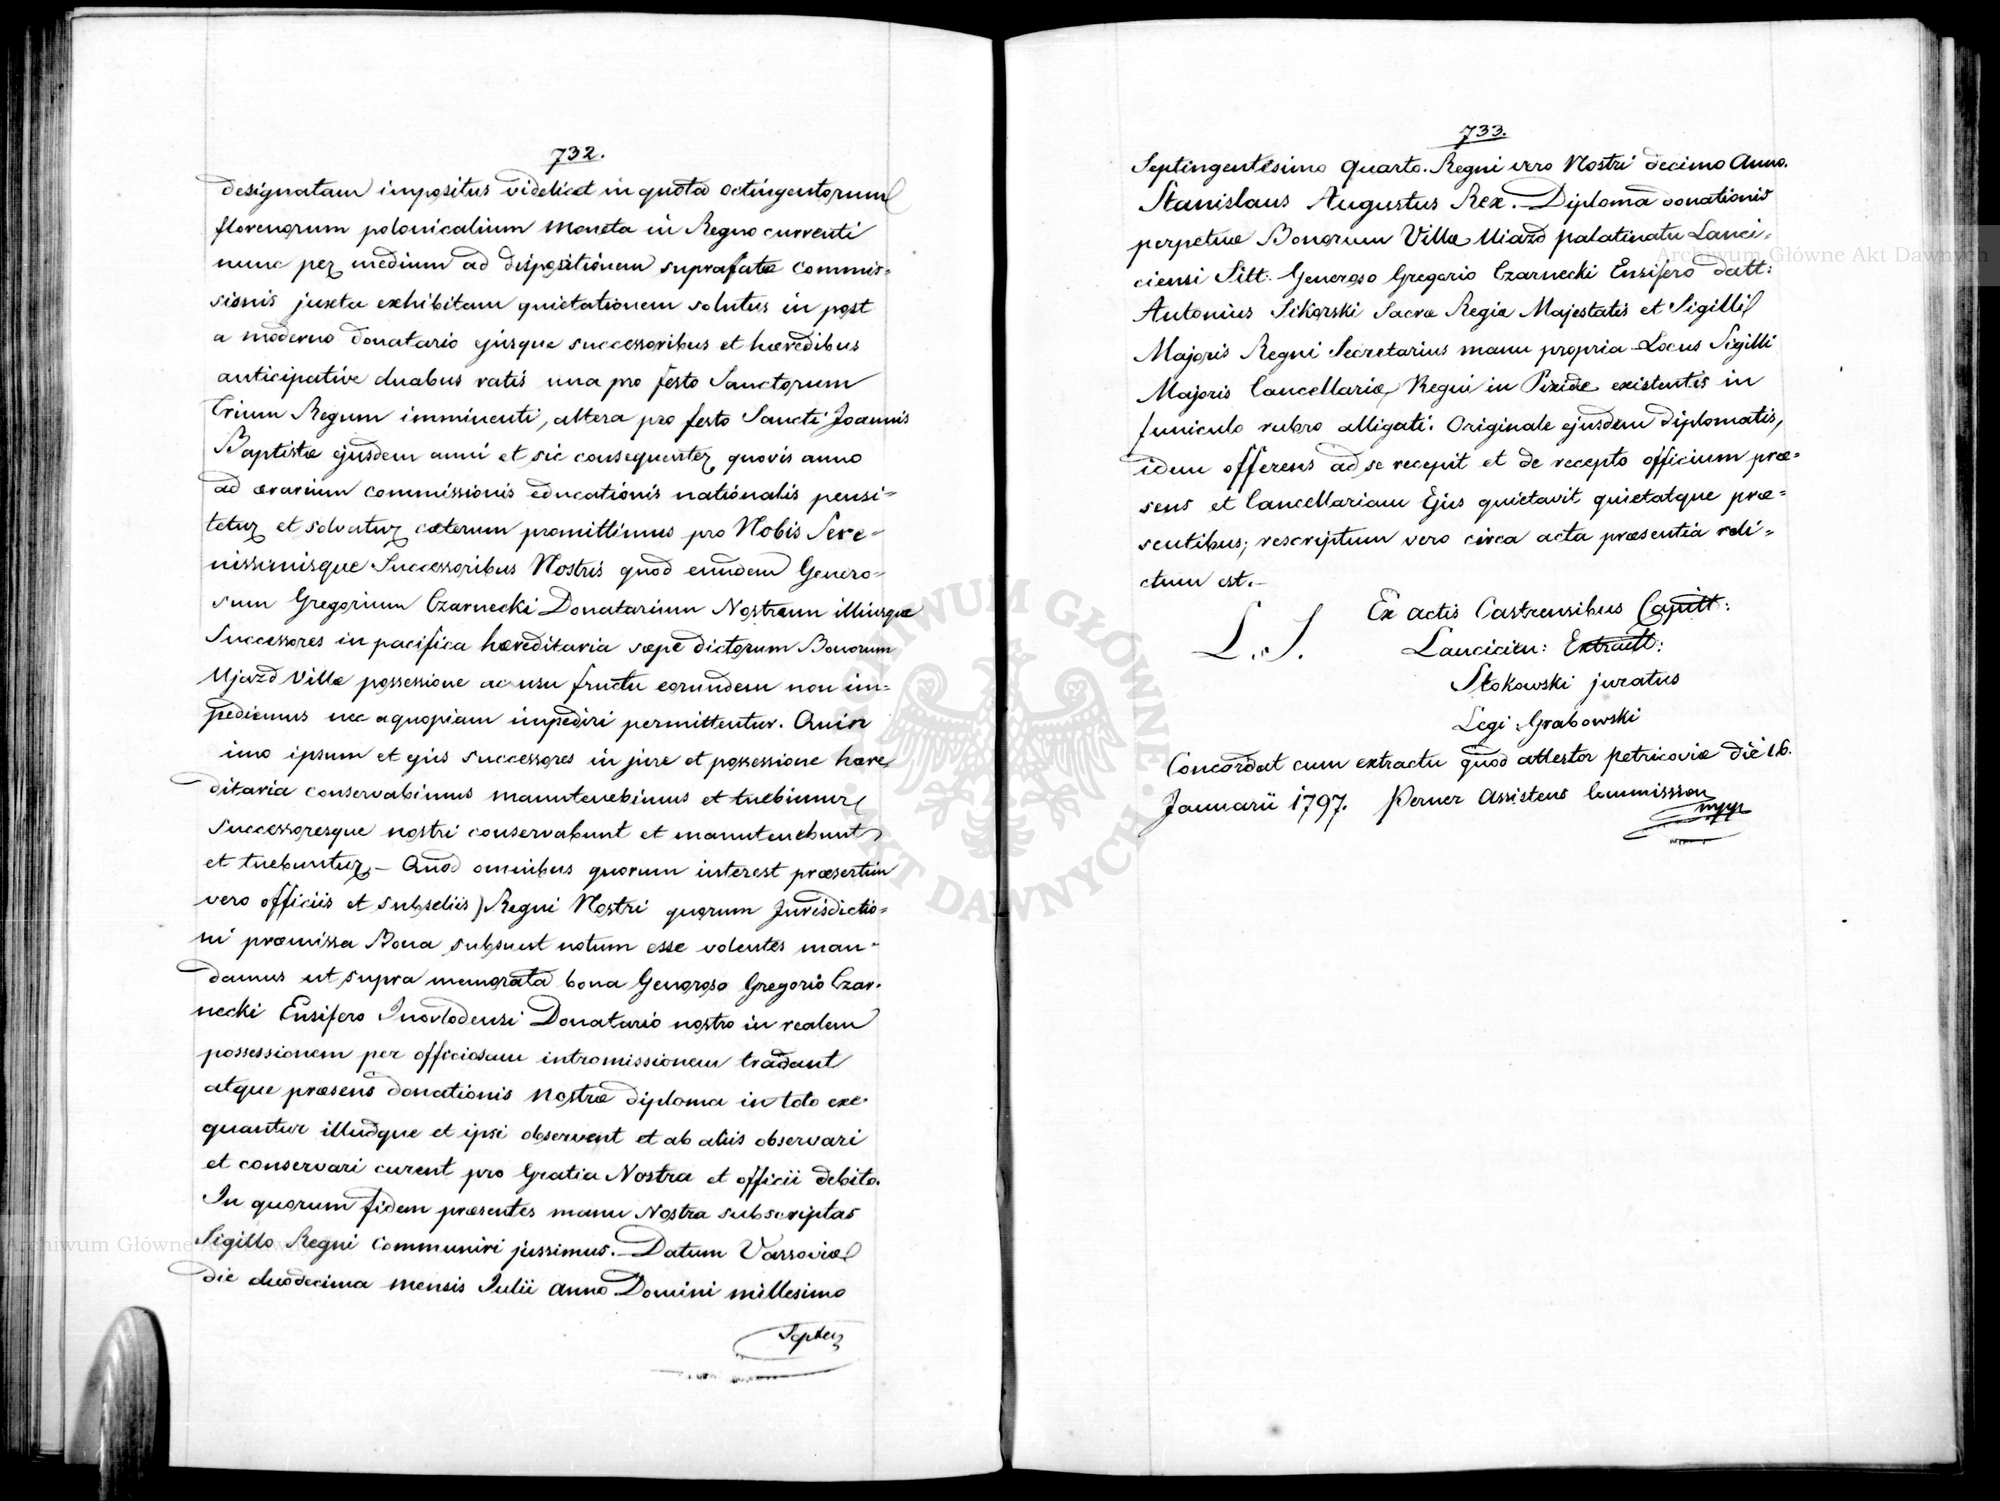 732.
designatam impositus videlicet in quota octingentorum
florenorum polonicalium moneta in Regno currenti
nunc per medium ad dispositionem suprafatæ commis-
sionis juxta exhibitam quietationem solutus in post
a moderno donatario ejusque successoribus et hæredibus
anticipative duabus ratis una pro festo Sanctorum
Trium Regum imminenti, altera pro festo Sancti Joannis
Baptistæ ejusdem anni et sic consequenter quovis anno
ad ærarium commissionis educationis nationalis pensi-
tetur et solvatur cæterum promittimus pro Nobis Sere-
nissimisque Successoribus Nostris quod eundem Genero-
sum Gregorium Czarnecki Donatarium Nostrum illiusque
Successores in pacifica hæreditaria sæpe dictorum Bonorum
Ujazd Villæ possessione ac usu fructu eorundem non im-
pediemus nec a quopiam impediri permittentur. Quin
imo ipsum et ejus successores in jure et possessione hære
ditaria conservabimus manutenebimus et tuebimur
Successoresque nostri conservabunt et manutenebunt
et tuebuntur – Quod omnibus quorum interest præsertim
vero officiis et subseliis Regni Nostri quorum Jurisdictio-
ni præmissa Bona subsunt notum esse volentes man-
damus ut supra memorata bona Generoso Gregorio Czar-
necki Ensifero Inovlodensi Donatario nostro in realem
possessionem per officiosam intromissionem tradant
atque præsens donationis nostræ diploma in toto exe-
quantur illudque et ipsi observent et ab aliis observari
et conservari curent pro Gratia Nostra et officii debito.
In quorum fidem præsentes manu Nostra subscriptas
Sigillo Regni communiri jussimus. – Datum Varsoviæ
die duodecima mensis Julii anno Domini millesimo
Septin
733.
Septingentesimo quarto. Regni vero Nostri decimo Anno.
Stanislaus Augustus Rex. – Diploma donationis
perpetuæ Bonorum Villæ Uiazd palatinatu Lanci-
ciensi Sitt: Generoso Gregorio Czarnecki Ensifero datt:
Antonius Sikorski Sacræ Regiæ Majestatis et Sigilli
Majoris Regni Secretarius manu propria – Locus Sigilli
Majoris Cancellariæ Regni in Pixide existentis in
funiculo rubro alligati. Originale ejusdem diplomatis,
idem offerens ad se recepit et de recepto officium præ-
sens et Cancellariam Ejus quietavit quietatque præ-
sentibus; rescriptum vero circa acta præsentia reli-
ctum est. –
L. S.
Ex actis Castrensibus Capitt:
Lancicien: Extractt:
Stokowski juratus
Legi Grabowski
Concordat cum extractu quod attestor Petricoviæ die 16.
Januarii 1797. Perner Assistens Commission
mpp
Archiwum Główne Akt Dawnych
Archiwum Główne Akt Dawnych
ARCHIWUM GŁÓWNE AKT DAWNYCH